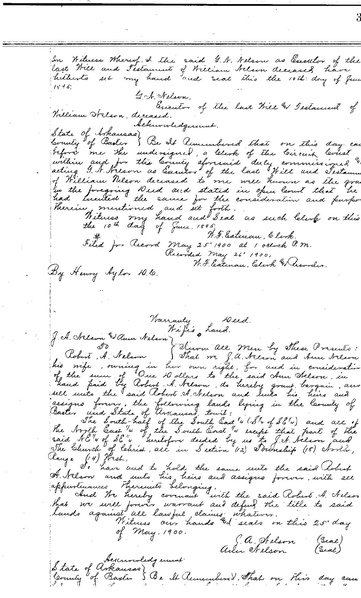 3
In Witness Whereof, I the said G. N. Nelson as Executor of the
last Will and Testament of William Nelson deceased have
hereunto set my hand and seal this the 10th day of June
1895.
G. N. Nelson,
Executor of the last Will & Testament of
William Nelson, deceased.
Acknowledgement.
State of Arkansas)
County of Baxter } Be It Remembered that on this day came
before me the undersigned, a Clerk of the Circuit Court
within and for the County aforesaid duly commissioned &
acting G. N. Nelson as Executor of the last Will and Testament
of William Nelson deceased to me well known as the
in the foregoing Deed and stated in open Court that he
had executed the same for the consideration and purposes
therein mentioned and set forth.
Witness my hand and Seal as such Clerk on this
the 10th day of June, 1895.
Clerk.
Filed for Record May 25" 1900 at 1 oclock P.M.
Recorded May 25" 1900.
Clerk & Recorder.
By Henry D.C.
Warranty Deed.
Wife's Land.
J. A. Nelson & Ann Nelson }
To } Know All Men by These Presents:
Robert A. Nelson } That we J. A. Nelson and Ann Nelson
his wife, owning in her own right, for and in consideration
of the sum of One Dollars to the said Ann Nelson, in
hand paid by Robert A. Nelson, do hereby grant bargain, and
sell unto the said Robert A. Nelson and unto his heirs and
assigns forever, the following lands lying in the County of
Baxter and State of Arkansas towit:
The South half of the South East ¼ (S½ of SE¼) and all of
the North East ¼ of the South East ¼ except that part of the
said NE¼ of SE¼ heretofore deeded by us to J. N. Nelson and
The Church of Christ, all in Section (12) Township (18) North,
Range (14) West.
To have and to hold the same unto the said Robert
A. Nelson and unto his heirs and assigns forever, with all
appurtenances thereunto belonging.
And We hereby covenant with the said Robert A. Nelson
that we will forever warrant and defend the title to said
lands against all lawful claims whatever.
Witness our hands & seals on this 25" day
of May, 1900.
J. A. Nelson (Seal)
Ann Nelson (Seal)
Acknowledgment.
State of Arkansas)
County of Baxter } Be It Remembered, That on this day came